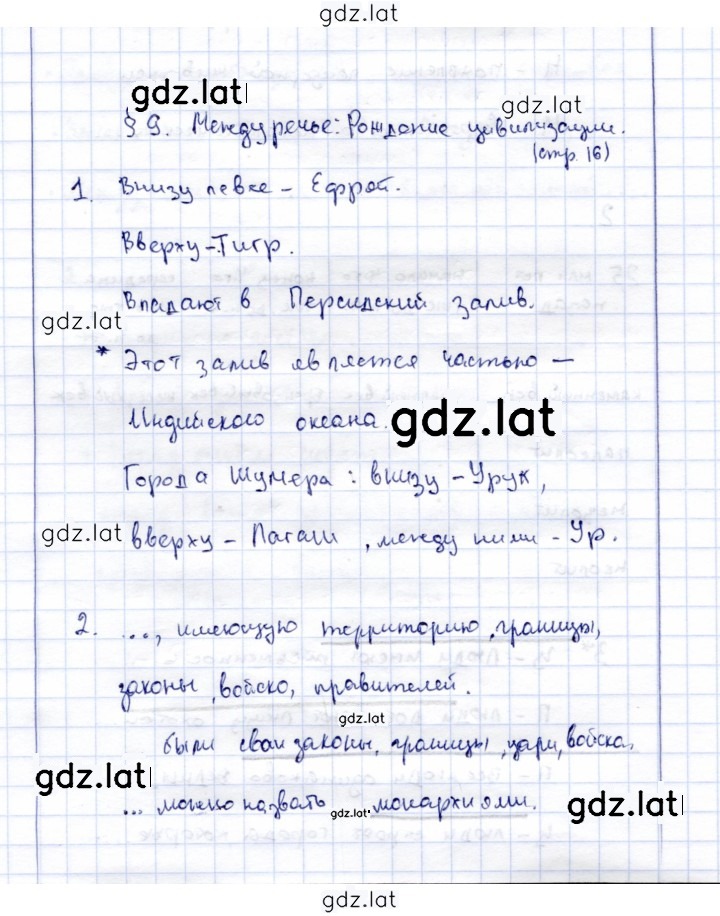 gdz.lat
gdz.lat
gdz.lat
§ 9. Междуречье: Рождение цивилизации.
(стр. 16)
1. Внизу левее - Ефрат.
Вверху - Тигр.
Впадают в Персидский залив.
gdz.lat
* Этот залив является частью -
Индийского океана.
gdz.lat
Города Шумера: внизу - Урук,
gdz.lat
вверху - Лагаш, между ними - Ур.
2. ..., имеющую территорию, границы,
законы, войско, правителей.
gdz.lat
были свои законы, границы, цари, войска.
gdz.lat
... можно назвать монархиями.
gdz.lat
gdz.lat
gdz.lat